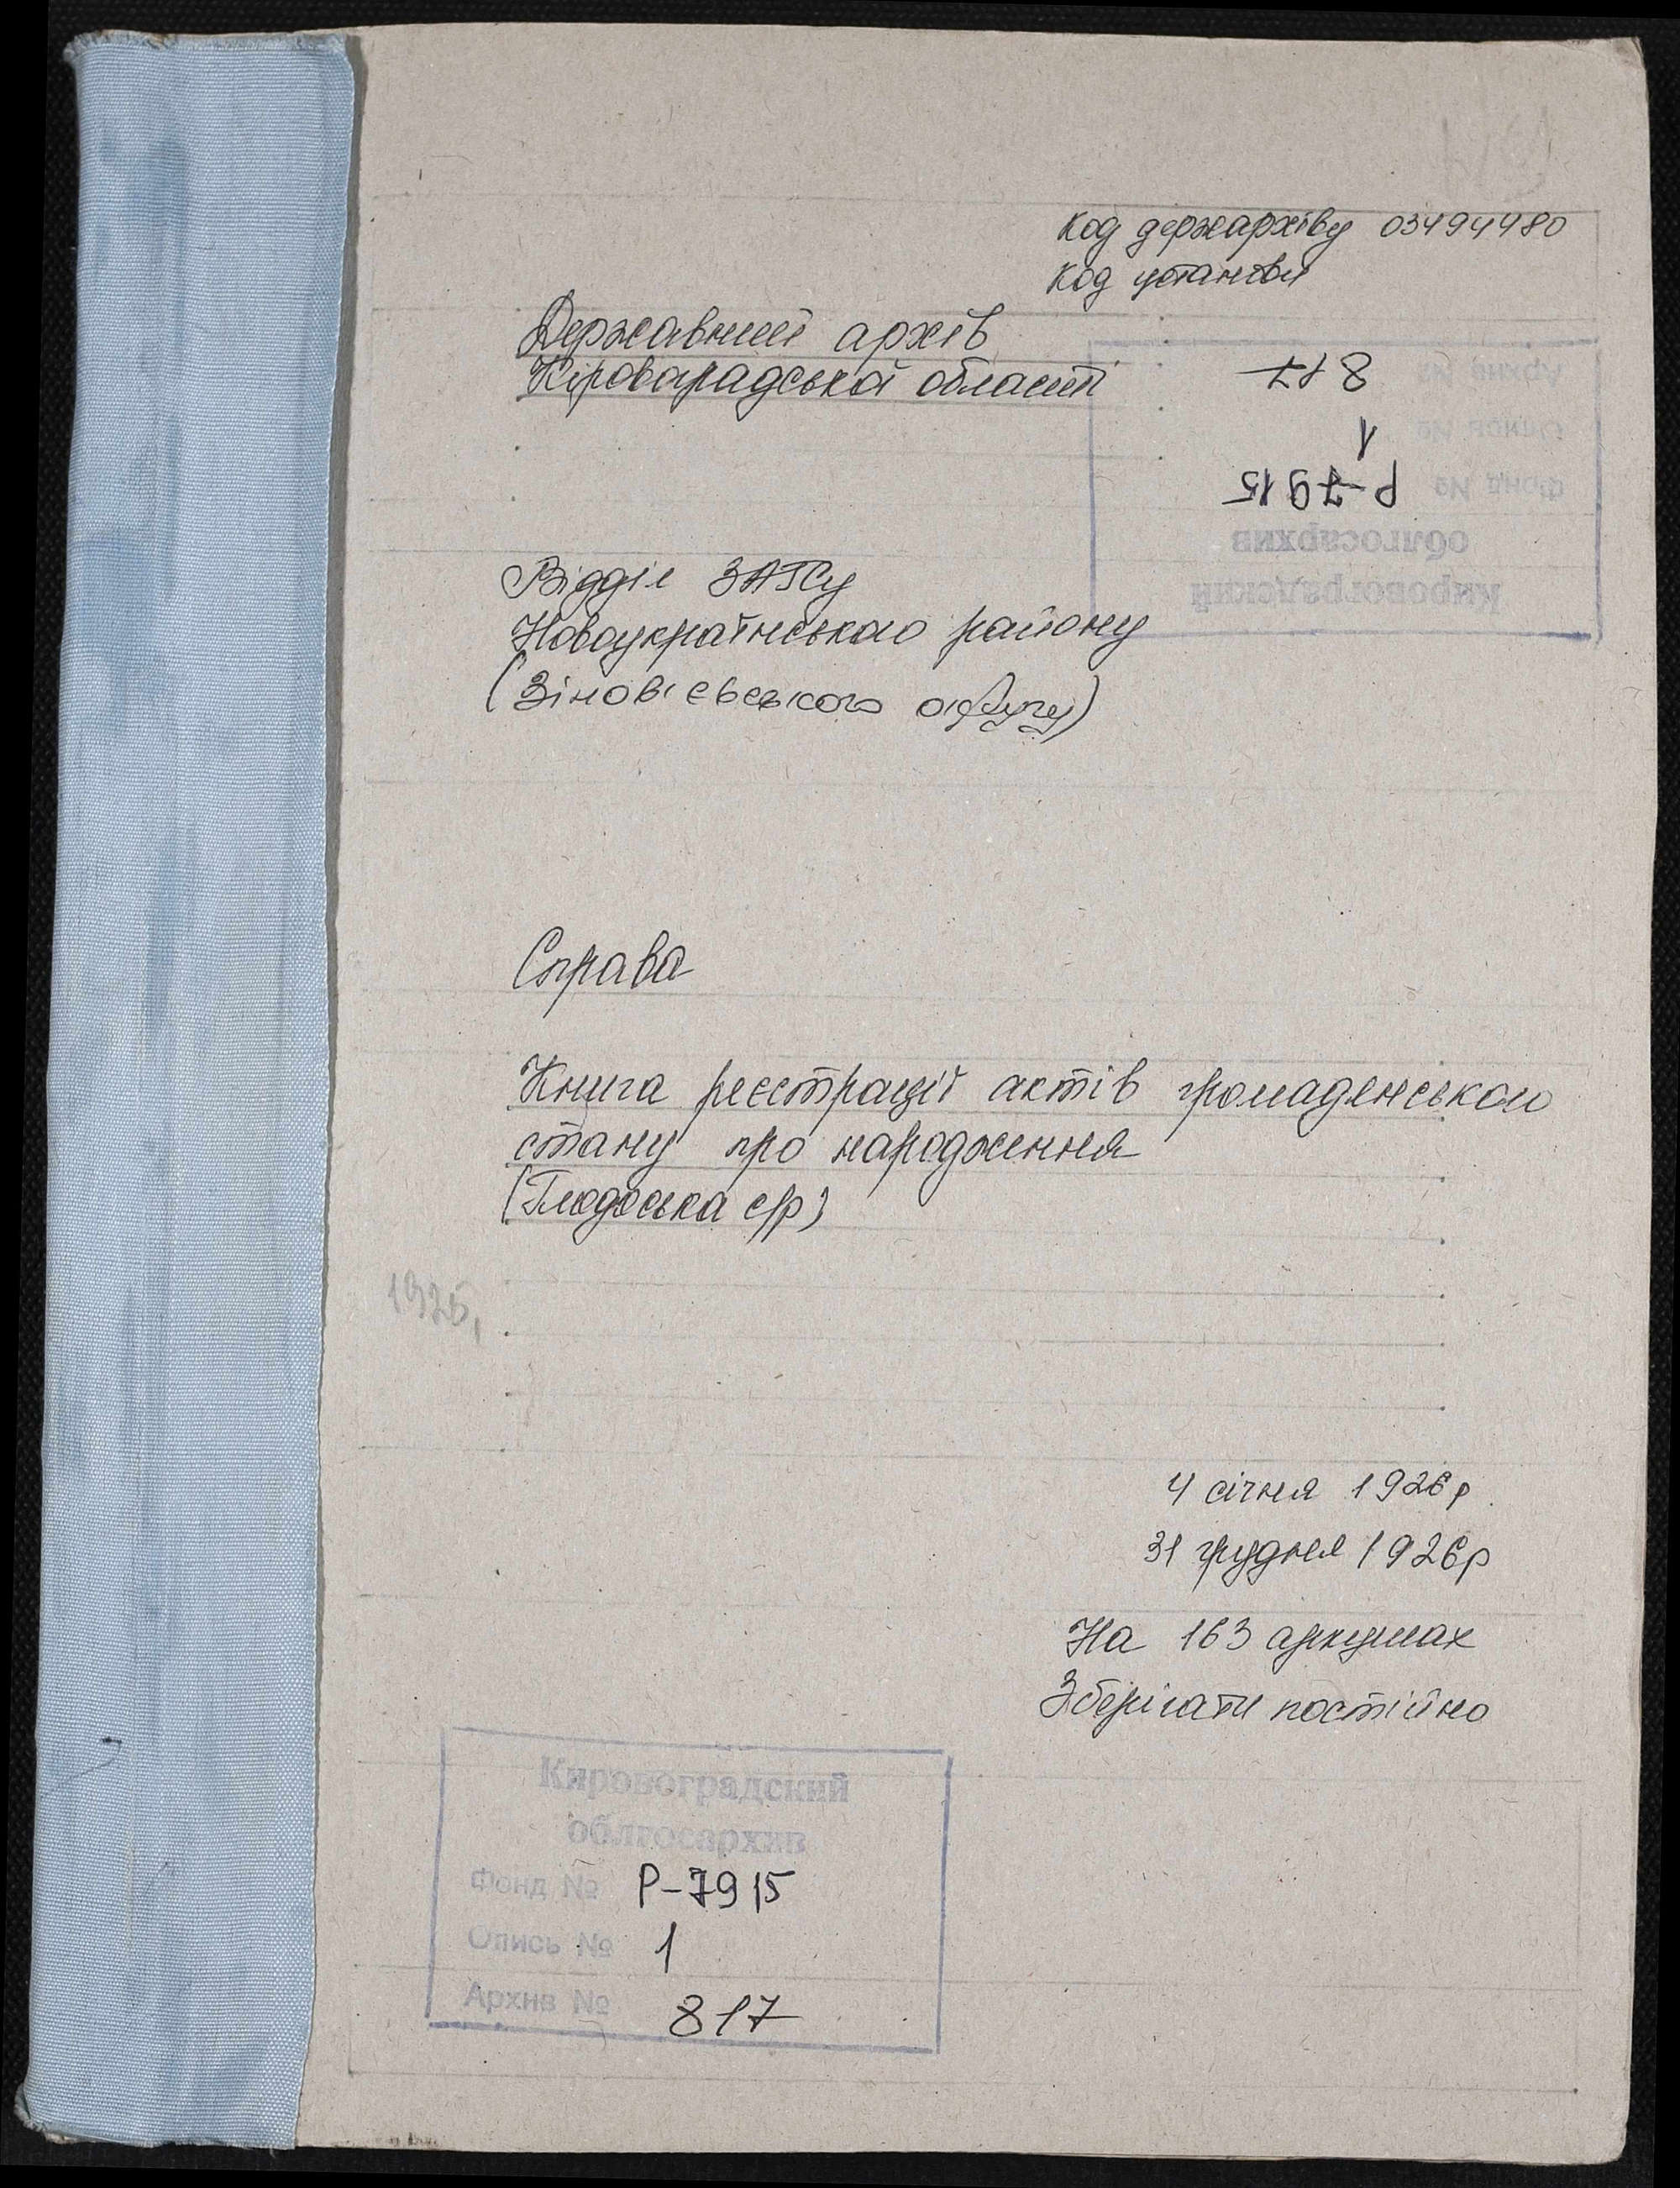 Код держархіву 03494480
Код установи
Державний архів
Кіровоградської області
Кировоградский
облгосархив
Фонд № Р-7915
Опись № 1
Архив № 817
Відділ ЗАГСу
Новоукраїнського району
(Зінов'євського округу)
Справа
Книга реєстрації актів громадянського
стану про народження
(Глодоська с/р)
4 січня 1926 р.
31 грудня 1926 р
На 163 аркушах
Зберігати постійно
Кировоградский
облгосархив
Фонд № Р-7915
Опись № 1
Архив № 817